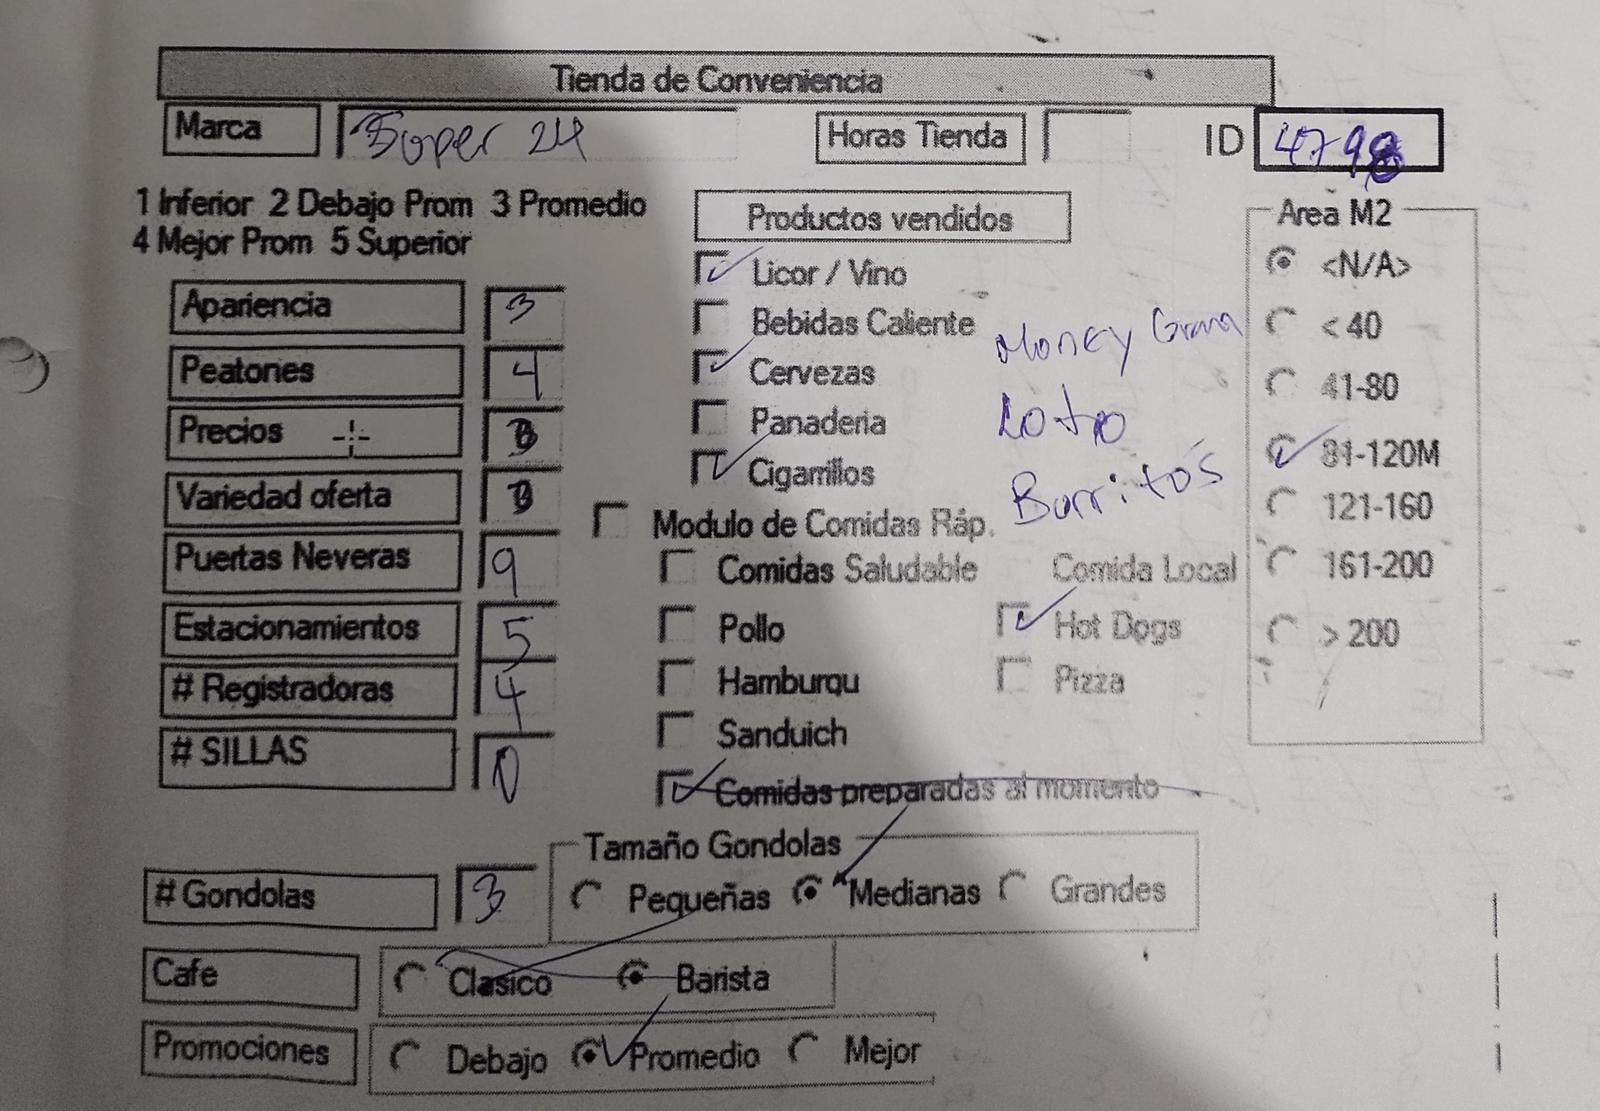 Tienda de Conveniencia
Marca Super 24 Horas Tienda ID 4798
1 Inferior 2 Debajo Prom 3 Promedio
4 Mejor Prom 5 Superior
Productos vendidos
Area M2
Licor / Vino
<N/A>
Apariencia 3
Bebidas Caliente
< 40
Money Gram
Peatones 4
Cervezas
41-80
Precios 3
Panaderia
Loto
Cigarrillos
81-120M
Variedad oferta 3
Burritos
Modulo de Comidas Ráp.
121-160
Puertas Neveras 9
Comidas Saludable
Comida Local
161-200
Estacionamientos 5
Pollo
Hot Dogs
> 200
# Registradoras 4
Hamburqu
Pizza
Sanduich
# SILLAS 0
Comidas preparadas al momento
Tamaño Gondolas
# Gondolas 3
Pequeñas Medianas Grandes
Cafe
Clasico Barista
Promociones
Debajo Promedio Mejor